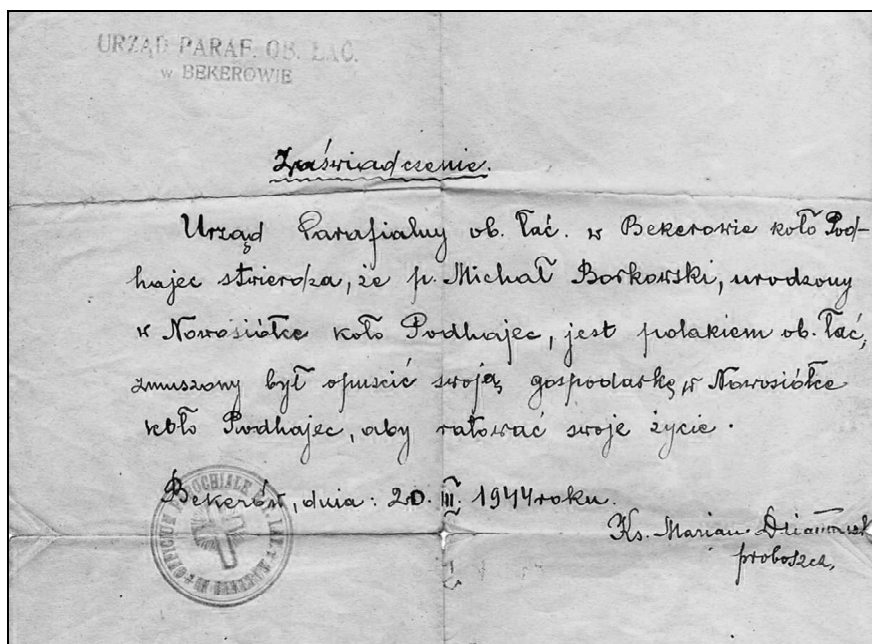 URZĄD PARAF. OB. ŁAC.
w BEKEROWIE
Zaświadczenie.
Urząd Parafialny ob. łać. w Bekerowie koło Pod-
hajec stwierdza, że p. Michał Borkowski, urodzony
w Nowosiółce koło Podhajec, jest polakiem ob. łać,
zmuszony był opuścić swoją gospodarkę w Nowosiółce
koło Podhajec, aby ratować swoje życie.
Bekerów, dnia: 20. III. 1944 roku.
Ks. Marian
proboszcz,